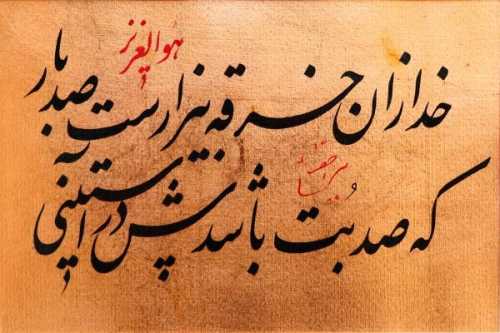 هوالعزیز
خدا زان خرقه بیزارست صد بار
که صد بت باشدش در آستینی